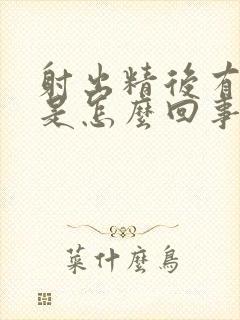 射出精後有
是怎麼回事
菜什麼鳥